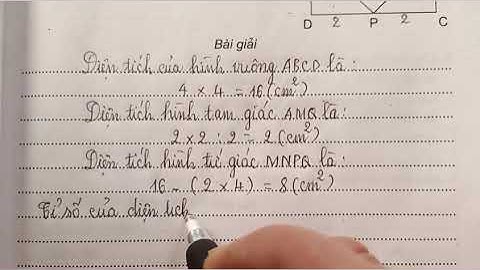 D 2 P 2 C
Bài giải
Diện tích của hình vuông ABCD là:
4 x 4 = 16 (cm²)
Diện tích hình tam giác AMQ là:
2 x 2 : 2 = 2 (cm²)
Diện tích hình tứ giác MNPQ là:
16 - (2 x 4) = 8 (cm²)
Tỉ số của diện tích